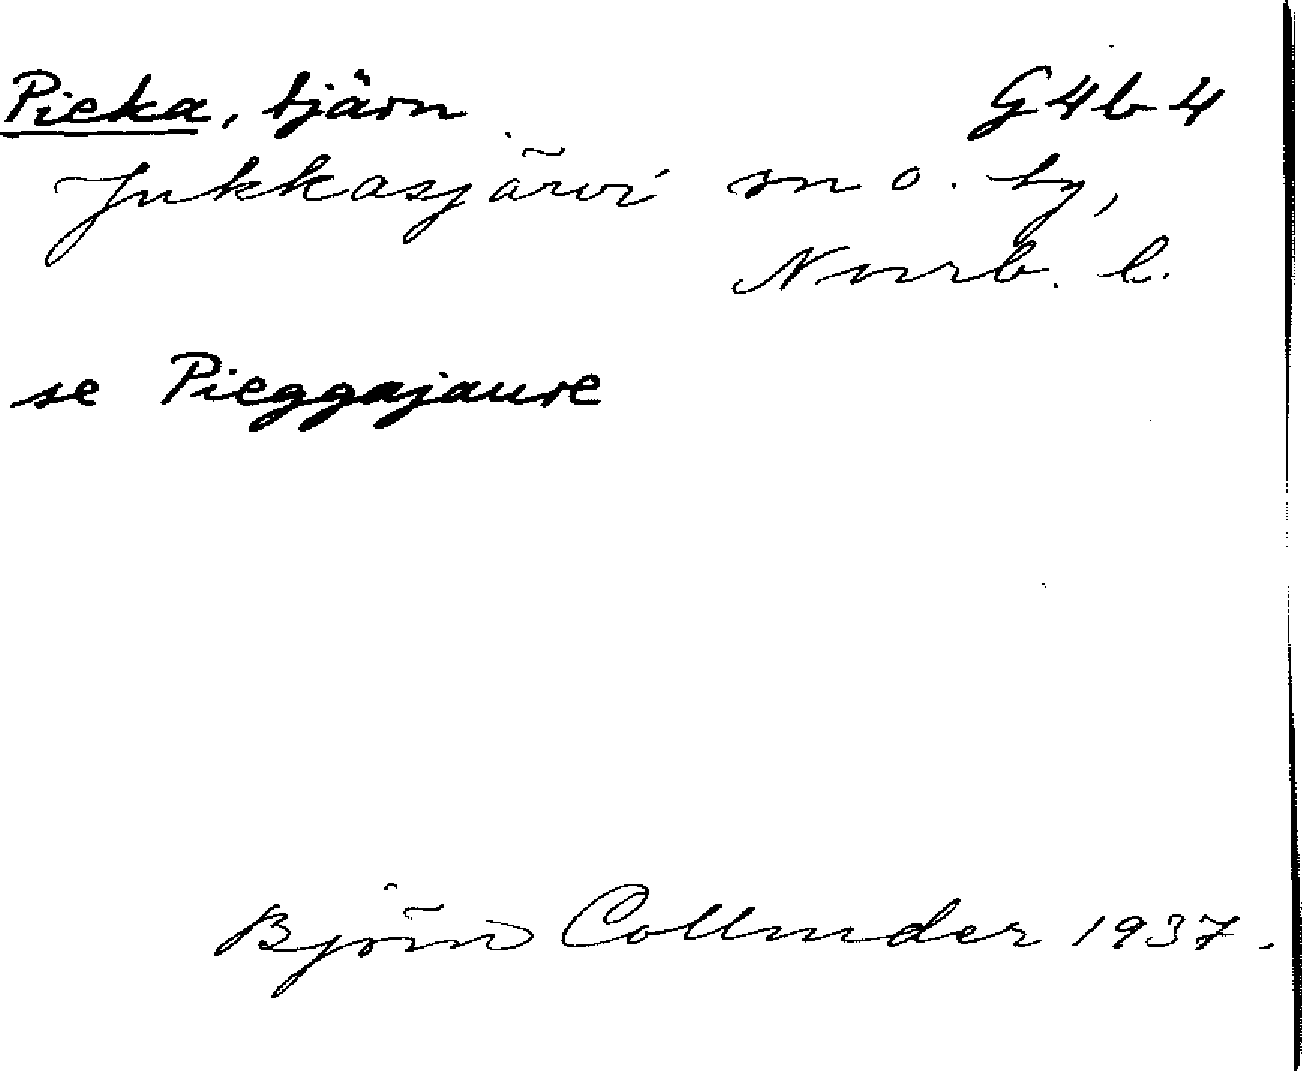 Pieka, tjärn G4b4
Jukkasjärvi sn o. by,
Norrb. l.
se Pieggajaure
Björn Collinder 1937.